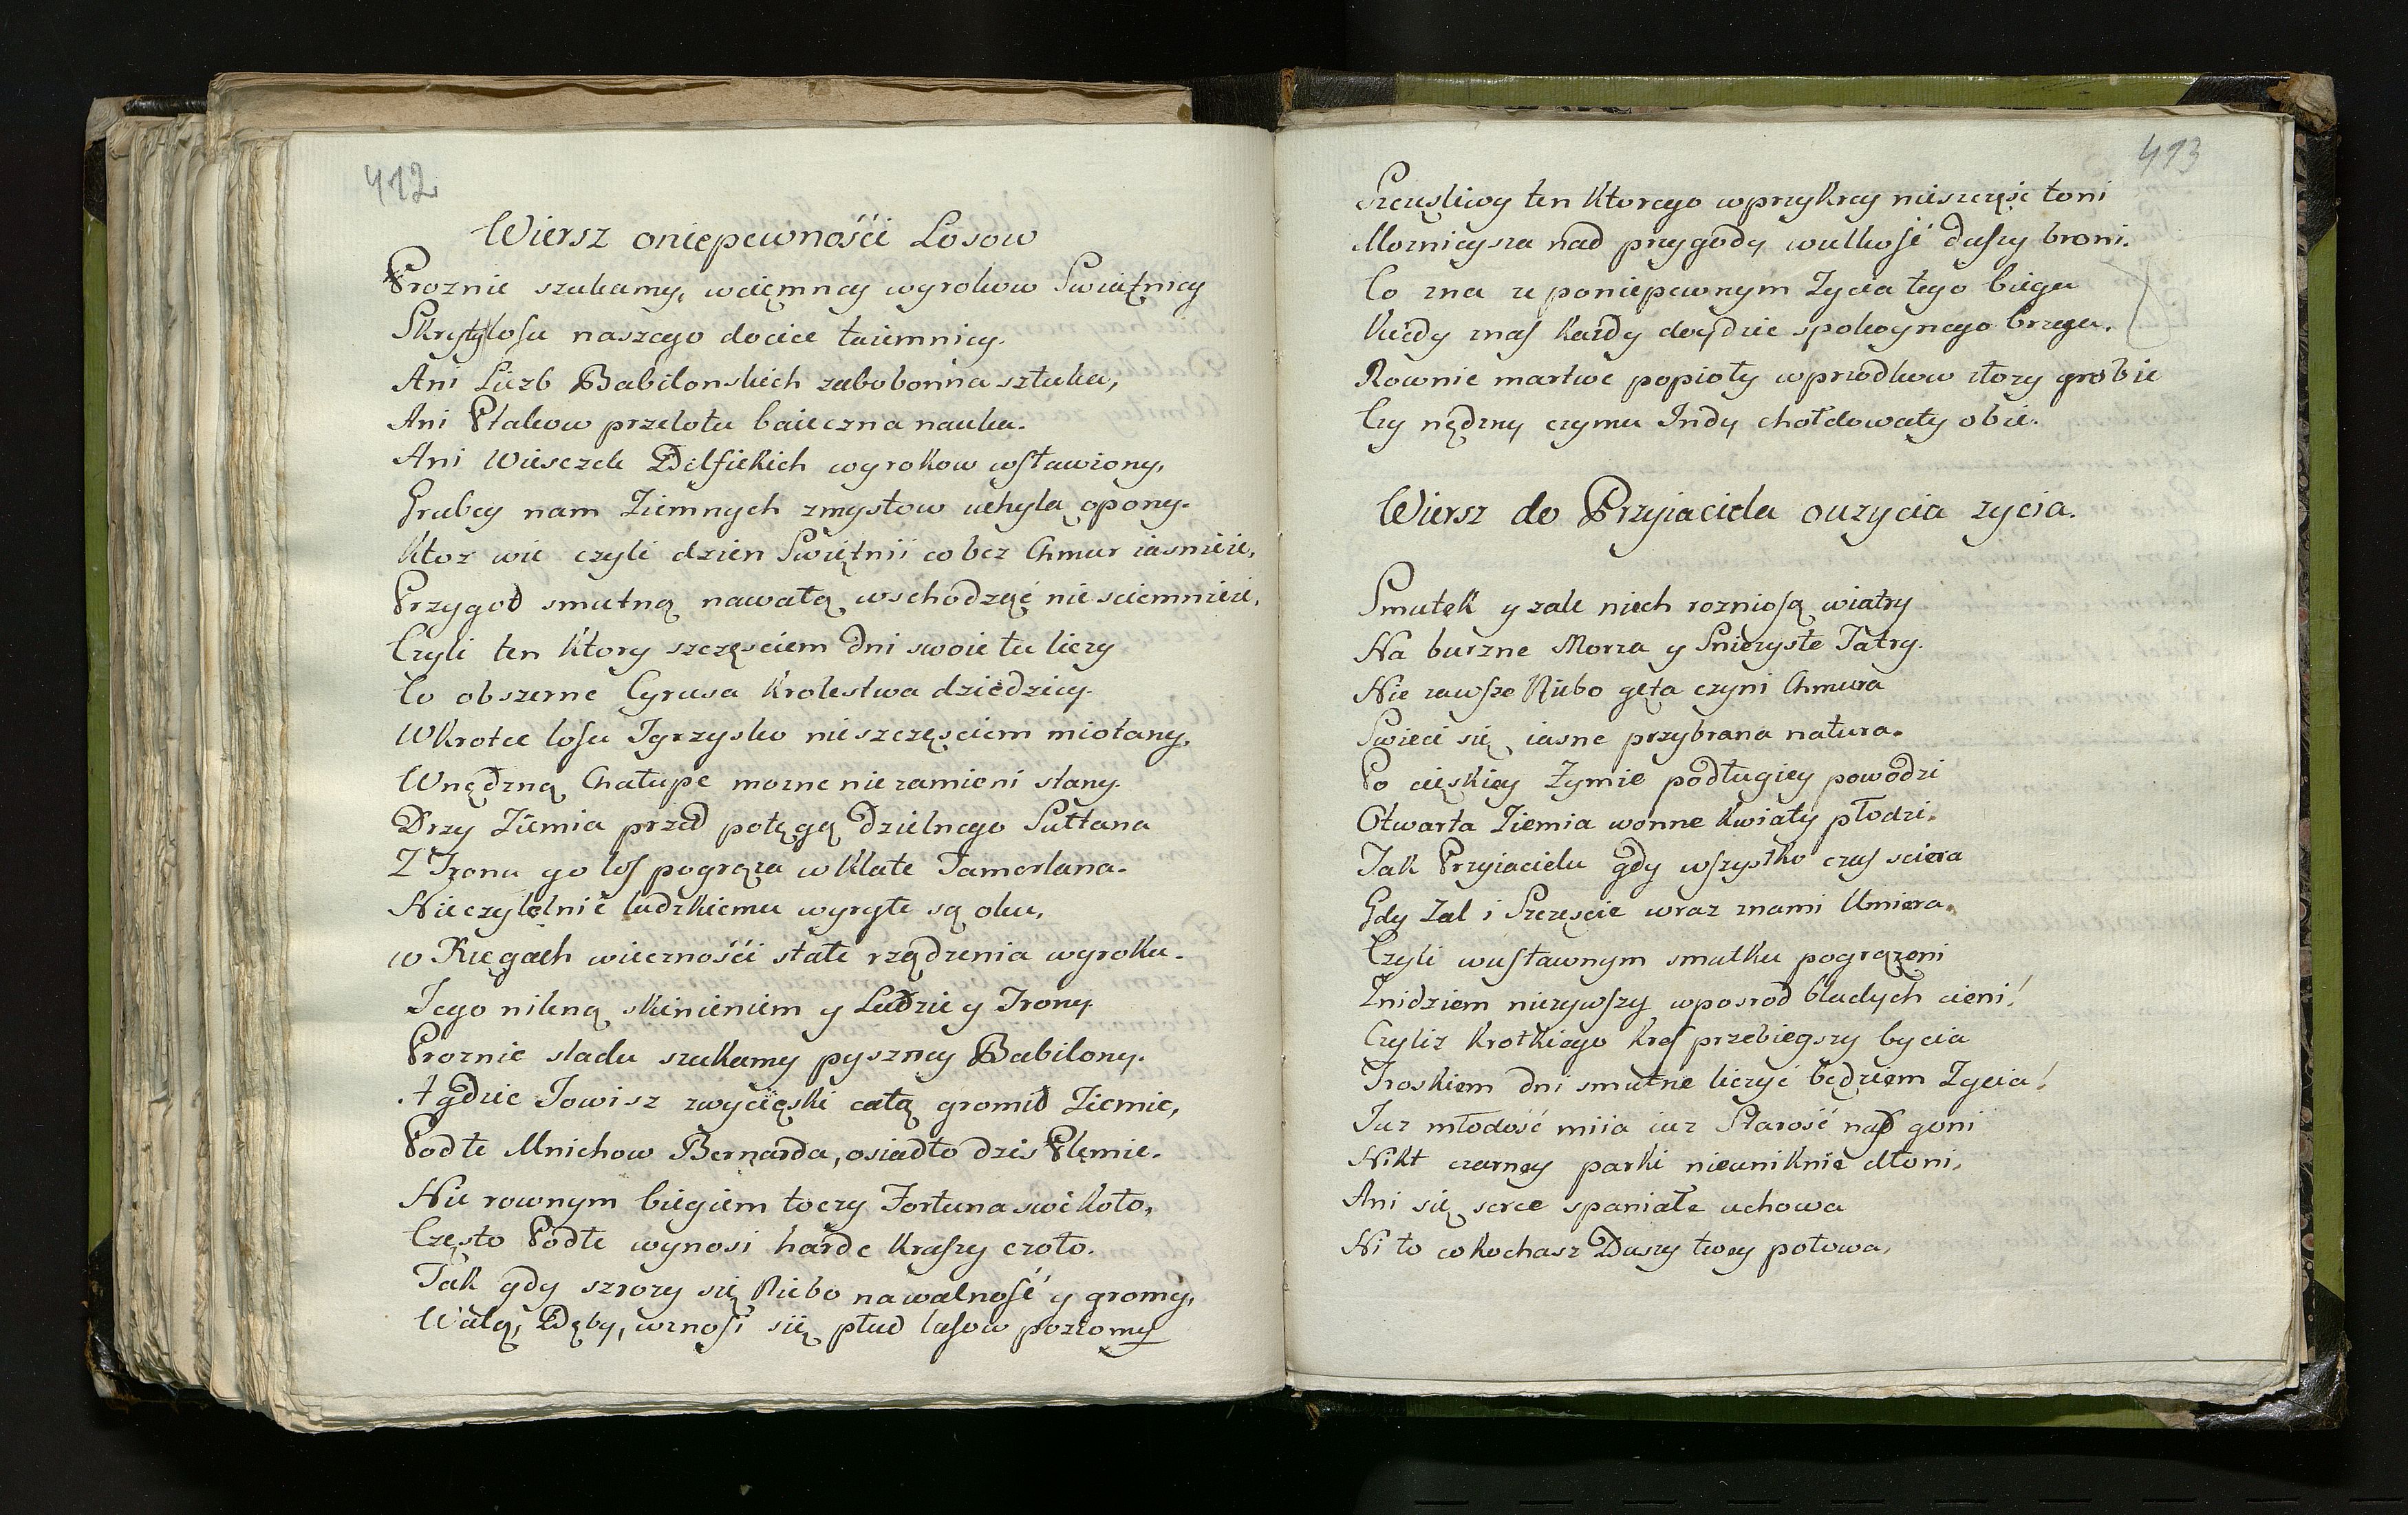 412
Wiersz oniepewnośći Losow
Proznie szukamy, wciemney wyrokow Swiątnicy
Skryty losu naszego dociec taiemnicy.
Ani Liczb Babilonskich zabobonna sztuka,
Ani Ptakow przelotu baieczna nauka.
Ani Wieszck Delfickich wyrokow wsławiony,
Grubey nam Ziemnych zmysłow uchyla opony.
Ktoz wie czyli dzien Swietnii co bez Chmur iasnieie,
Przygod smutną nawałą wschodząć nie sciemnieie,
Czyli ten Ktory szczęsciem dni swoie tu liczy
Co obszerne Cyrusa Krolestwa dziedzicy.
Wkrotce losu Igrzysko nieszczęsciem miotany,
Wnędzną Chałupe mozne nie zamieni stany.
Drzy Ziemia przed potęgą dzielnego Sułtana
Z Tronu go los pogrąza w Klate Tamerlana.
Nieczytelnie ludzkiemu wyryte są oku,
w Kięgach wiecznośći stałe rządzenia wyroku.
Jego nikną skinieniem y Ludzie y Trony.
Proznie sladu szukamy pyszney Babilony.
A gdzie Jowisz zwycięski całą gromił Ziemie,
Podłe Mnichow Bernarda, osiadło dzis Plemie.
Nie rownym biegiem toczy Fortuna swe koło,
Często Podłe wynosi harde Kruszy czoło.
Tak gdy szrozy się Niebo nawalność y gromy,
Walą, Dęby, wznosi się płud lasow poziomy
413
Szczęsliwy ten Ktorego wprzykrey nieszczęsc toni
Moznieysza nad przygody wielkość duszy broni.
Co zna ze poniepewnym Zycia tego biegu
Kiedy znas Kazdy doydzie spokoynego brzegu.
Rownie martwe popioły wprzodkow złozy grobie
Czy nędzny czymu Indy chołdowały obie.
Wiersz do Przyiaciela ouzycia zycia.
Smutek y zale niech rozniosą wiatry
Na burzne Morza y Sniezyste Tatry.
Nie zawsze Niebo gęta czyni Chmura
Swieci się iasne przybrana natura.
Po cięskiey Zymie podługiey powodzi
Otwarta Ziemia wonne Kwiaty płodzi.
Tak Przyiacielu gdy wszystko czas sciera
Gdy Zal i Szczęscie wraz znami Umiera.
Czyli wustawnym smutku pogrązeni
Znidziem niezywszy wposrod bladych cieni!
Czyliz Krotkiego Kres przebiegszy bycia
Troskiem dni smutne liczyć będziem Zycia!
Juz młodość miia iuz Starość nad goni
Nikt czarney parki nieuniknie dłoni,
Ani się serce spaniałe uchowa
Ni to co kochasz Duszy twey połowa,